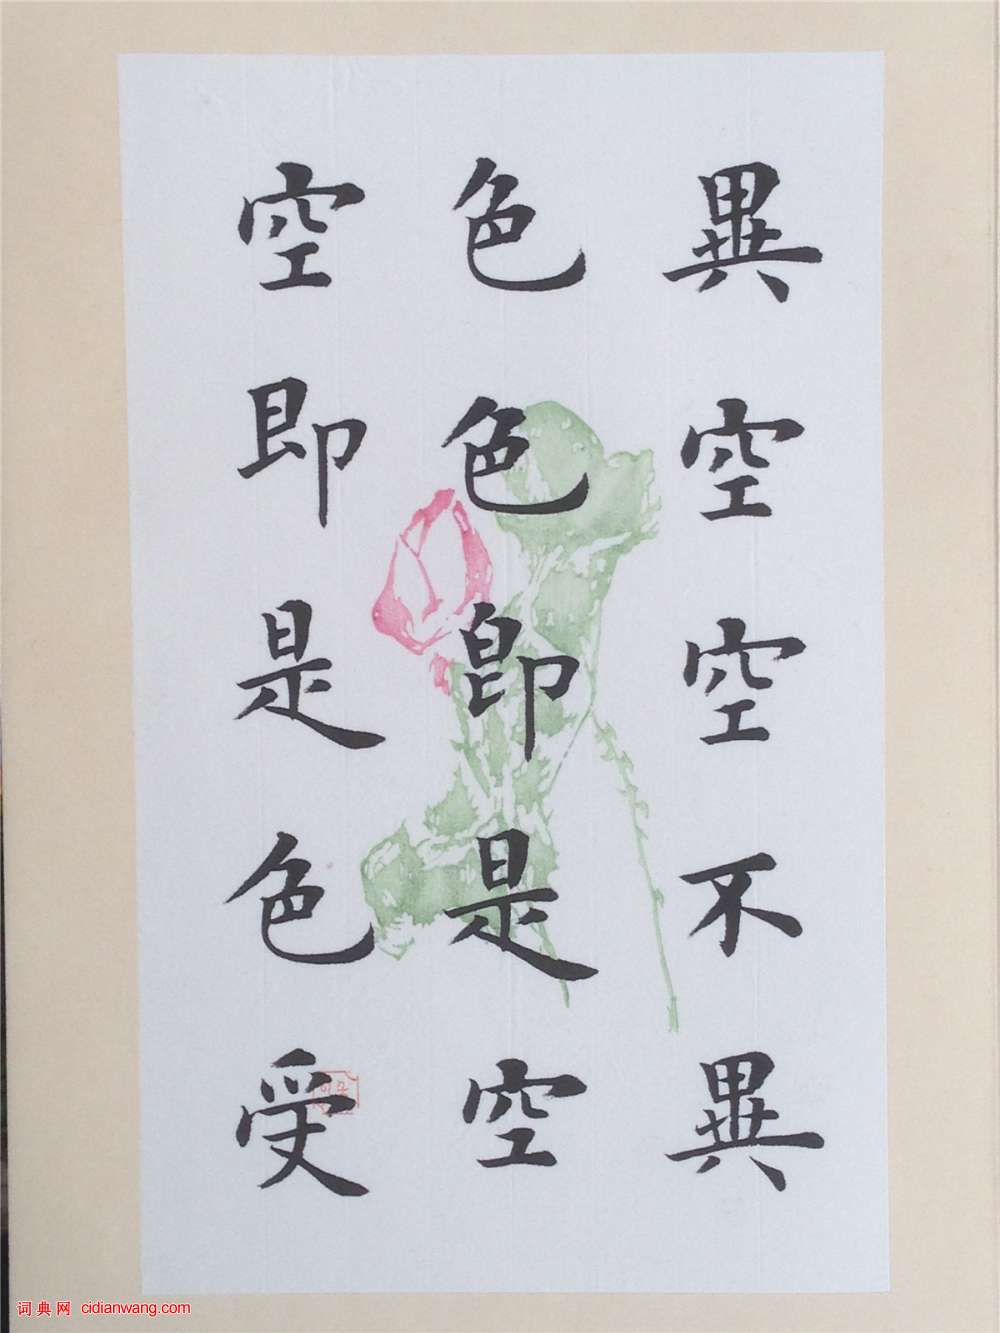 異空空不異
色色即是空
空即是色受
词典网 cidianwang.com